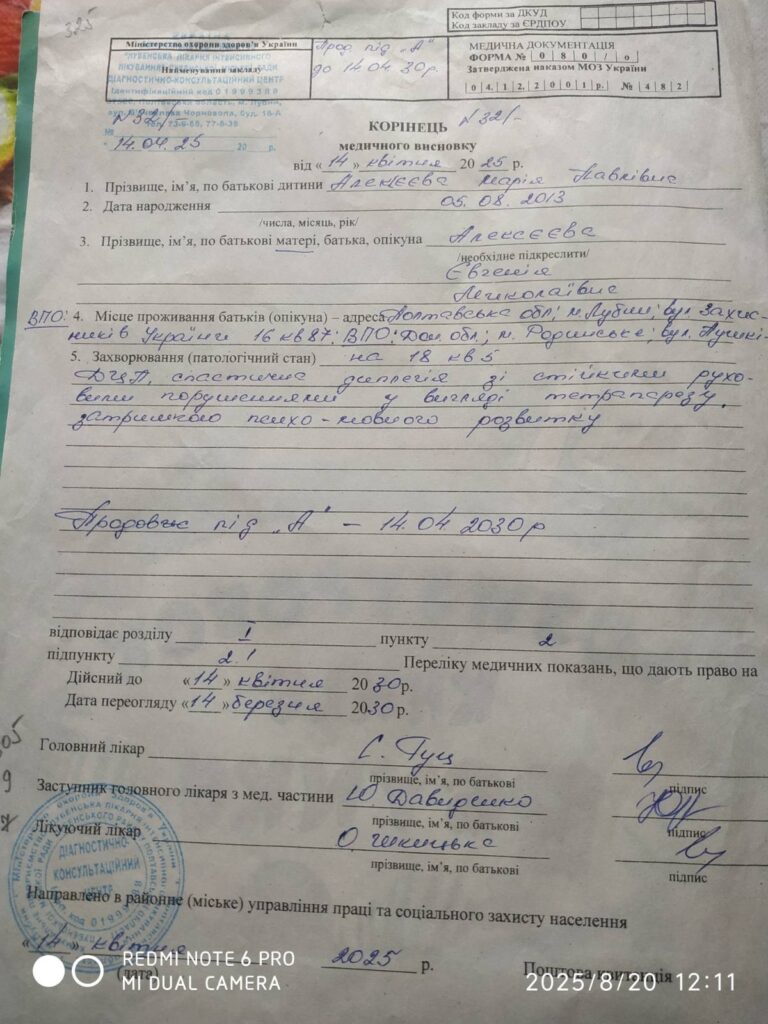 325
Код форми за ДКУД
Код закладу за ЄРДПОУ
Міністерство охорони здоров'я України
Найменування закладу
"ЛУБЕНСЬКА ЛІКАРНЯ ІНТЕНСИВНОГО
ДІАГНОСТИЧНО-КОНСУЛЬТАЦІЙНИЙ ЦЕНТР
Ідентифікаційний код 01999388
Прод. під „А"
до 14.04.30р.
МЕДИЧНА ДОКУМЕНТАЦІЯ
ФОРМА № 0 8 0 / о
Затверджена наказом МОЗ України
0 4. 1 2. 2 0 0 1 р. № 4 8 2
№ 321/-
14.04.25 20 р.
КОРІНЕЦЬ №321/-
медичного висновку
від «14» квітня 2025 р.
1. Прізвище, ім'я, по батькові дитини Алексєєва Марія Павлівна
2. Дата народження 05.08.2013
/числа, місяць, рік/
3. Прізвище, ім'я, по батькові матері, батька, опікуна Алексєєва
/необхідне підкреслити/
Євгенія
Миколаївна
ВПО: 4. Місце проживання батьків (опікуна) – адреса Полтавська обл; м. Лубни; вул. Захис-
ників України 16 кв 87; ВПО: Дон. обл; м. Родинське; вул. Пушкі-
5. Захворювання (патологічний стан) на 18 кв 5
ДЦП, спастична диплегія зі стійкими рухо-
вими порушеннями у вигляді тетрапарезу,
затримкою психо-мовного розвитку
Продовж під „А" – 14.04.2030р
відповідає розділу I пункту 2
підпункту 2.1 Переліку медичних показань, що дають право на
Дійсний до «14» квітня 2030р.
Дата переогляду «14» березня 2030р.
Головний лікар С. Гуц
прізвище, ім'я, по батькові підпис
Заступник головного лікаря з мед. частини Ю Давиденко
прізвище, ім'я, по батькові підпис
Лікуючий лікар О.
прізвище, ім'я, по батькові підпис
ДІАГНОСТИЧНО-
КОНСУЛЬТАЦІЙНИЙ
ЦЕНТР
Направлено в районне (міське) управління праці та соціального захисту населення
«14» квітня 2025 р. Поштова квитанція
(дата)
REDMI NOTE 6 PRO
MI DUAL CAMERA
2025/8/20 12:11